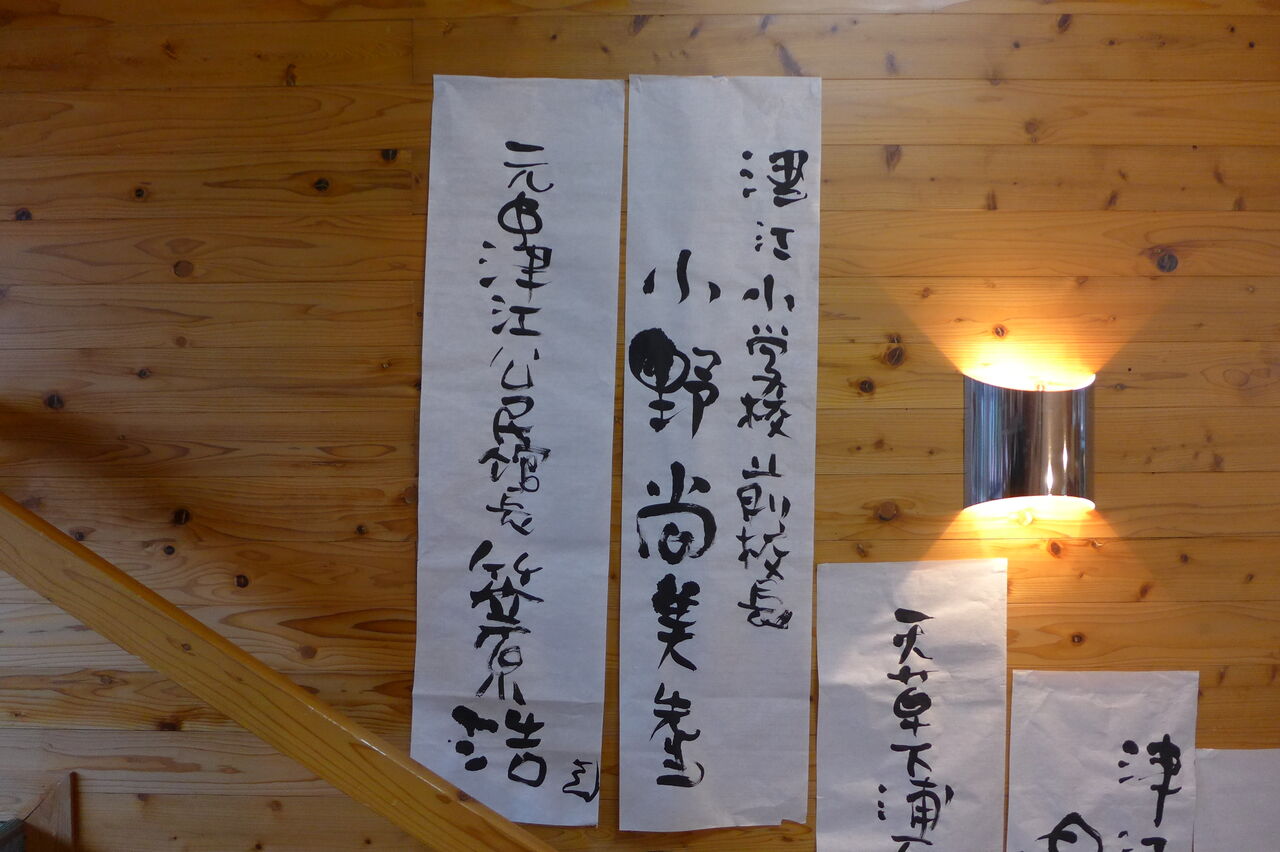 津江
天草下浦
津江小学校前校長
小野尚美先生
元中津江公民館長 笠原浩